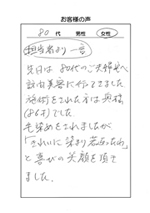 お客様の声
80 代 男性 女性
担当者より一言
先日は80代のご夫婦へ
訪問美容に行ってきました
施術をされた方は奥様
(86才)でした
毛染めをされましたが
「きれいに染まり若返ったわ」
と喜びの笑顔を頂き
ました。